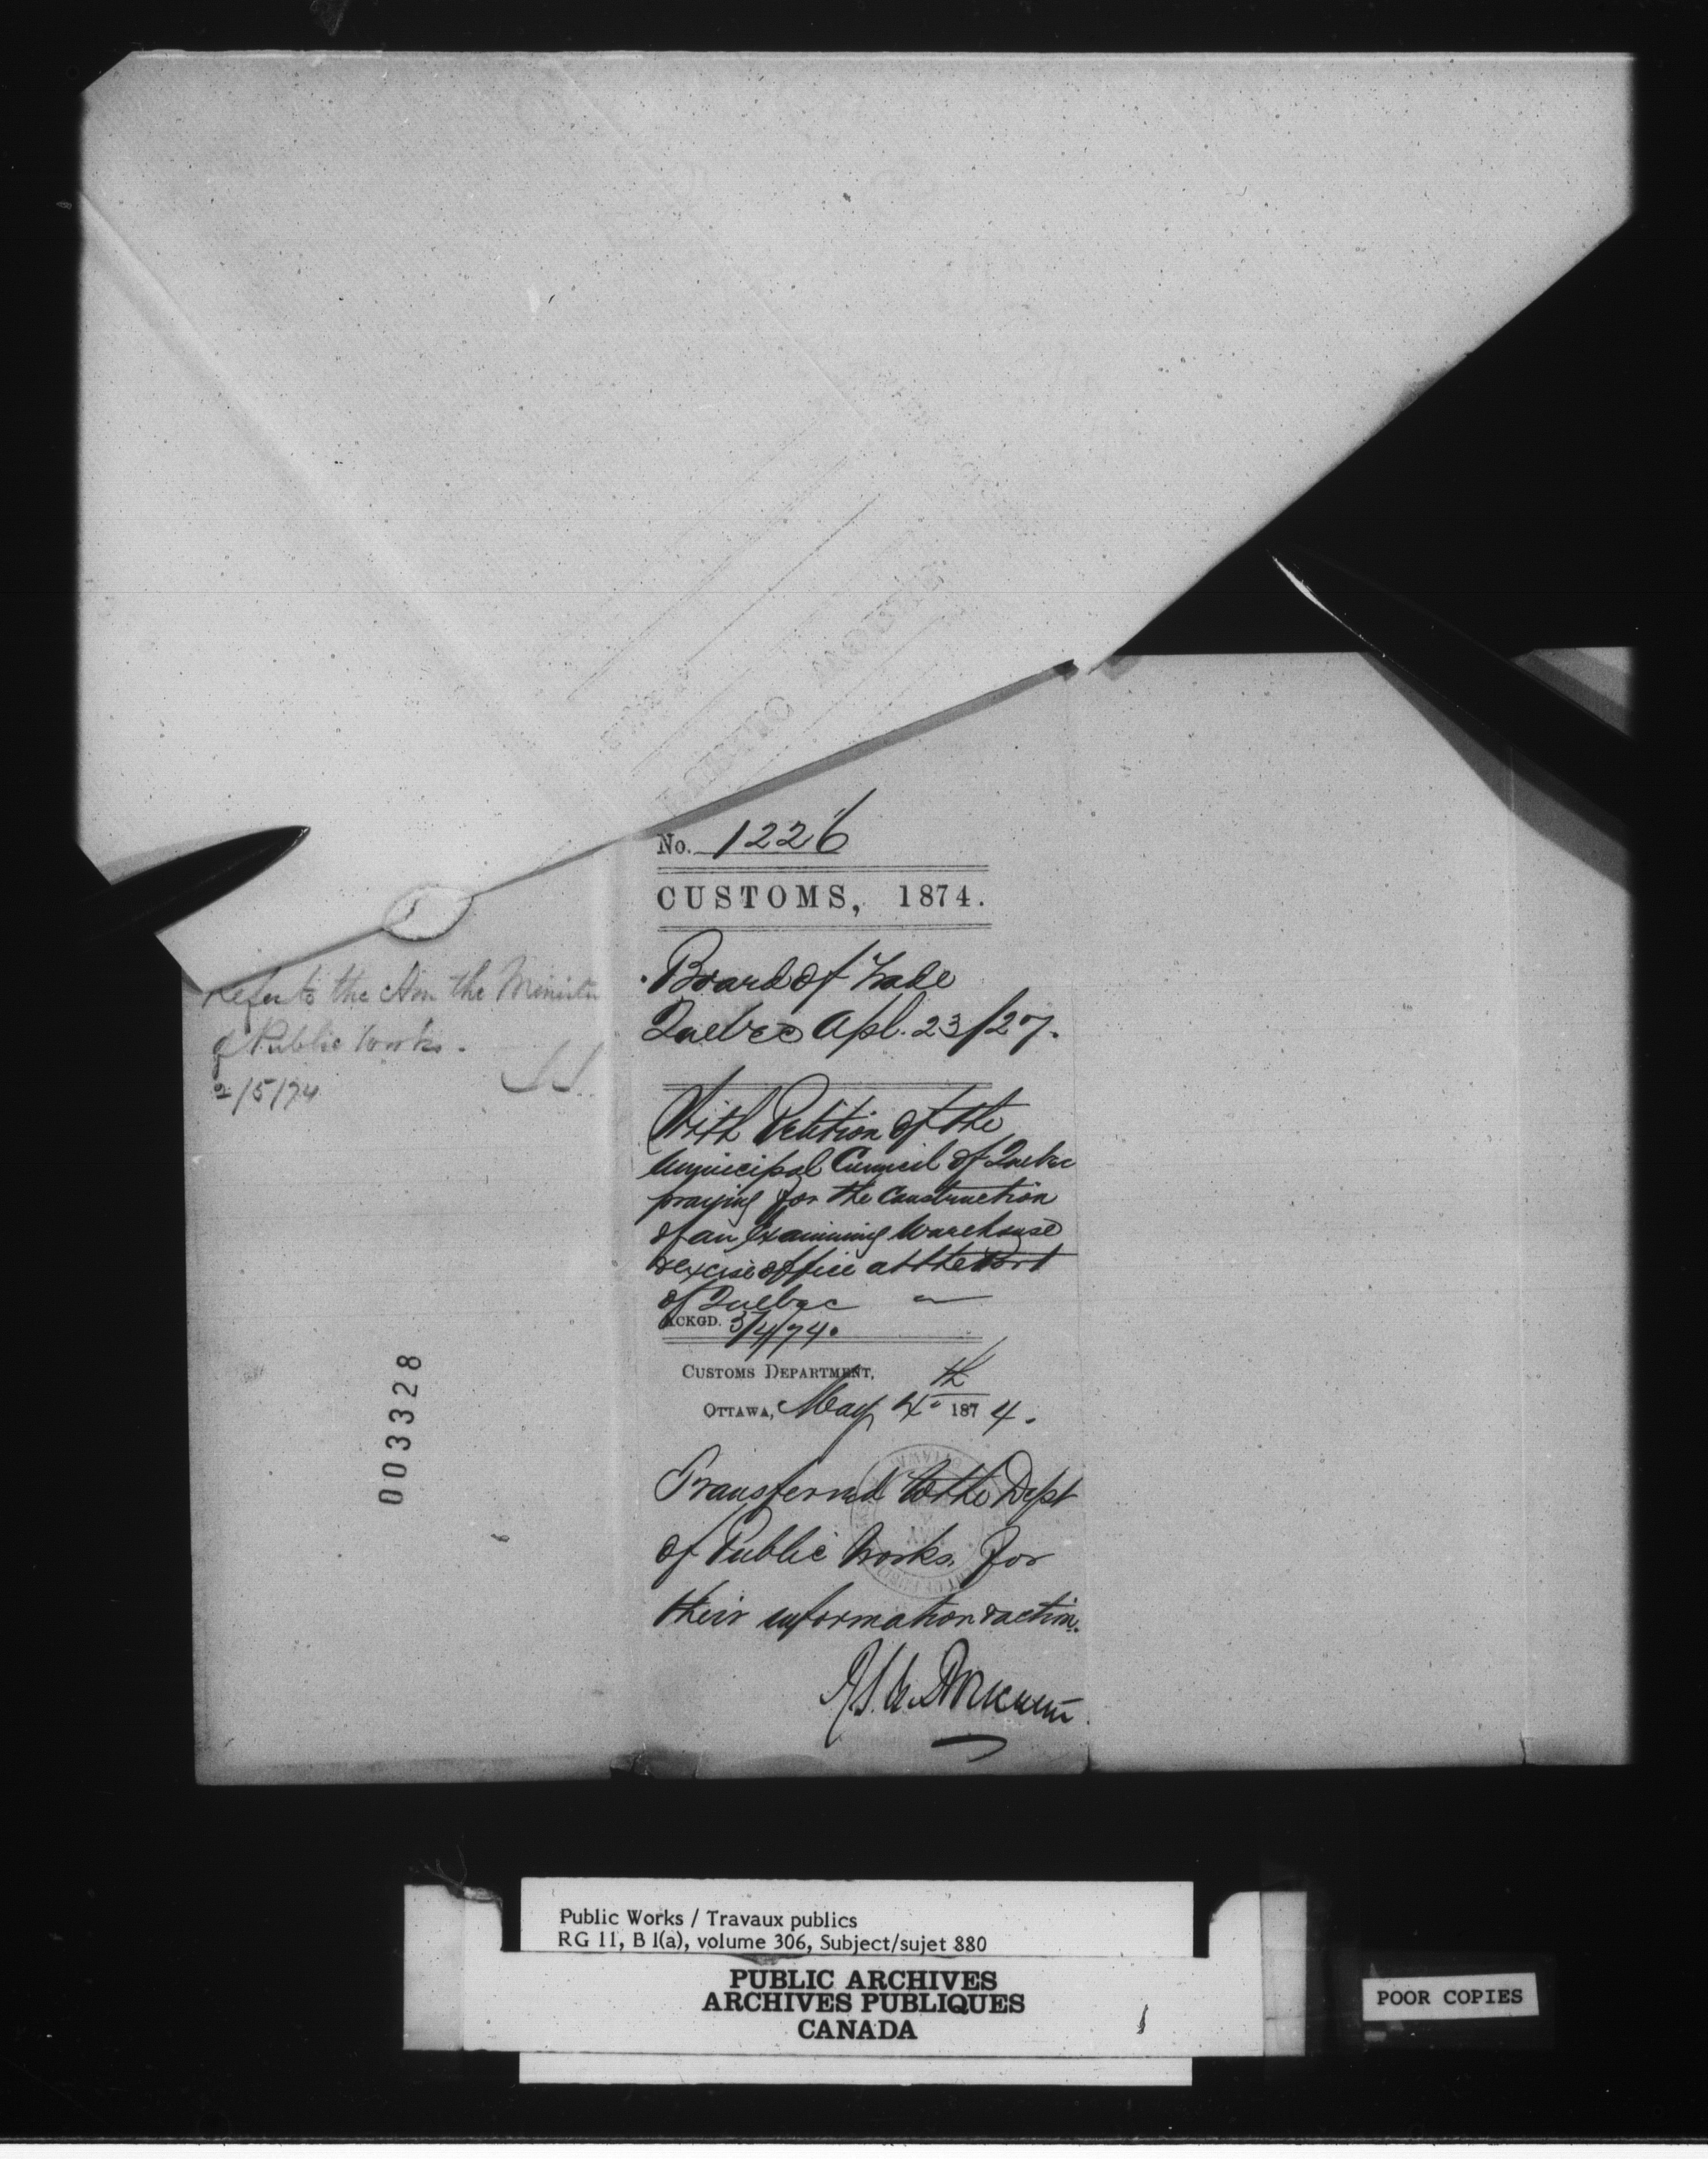 No. 1226
CUSTOMS, 1874.
Board of Trade
Quebec Apl. 23/27.
With Petition of the
Municipal Council of Quebec
praying for the construction
of an Examining Warehouse
& excise office at the Port
of Quebec
ACKGD. 3/4/74.
CUSTOMS DEPARTMENT,
OTTAWA, May 4th 1874.
Transferred to the Dept
of Public Works for
their information & action.
refer to the Hon the Minister
of Public Works.
2/5/74
003328
Public Works / Travaux publics
RG 11, B 1(a), volume 306, Subject/sujet 880
PUBLIC ARCHIVES
ARCHIVES PUBLIQUES
CANADA
POOR COPIES